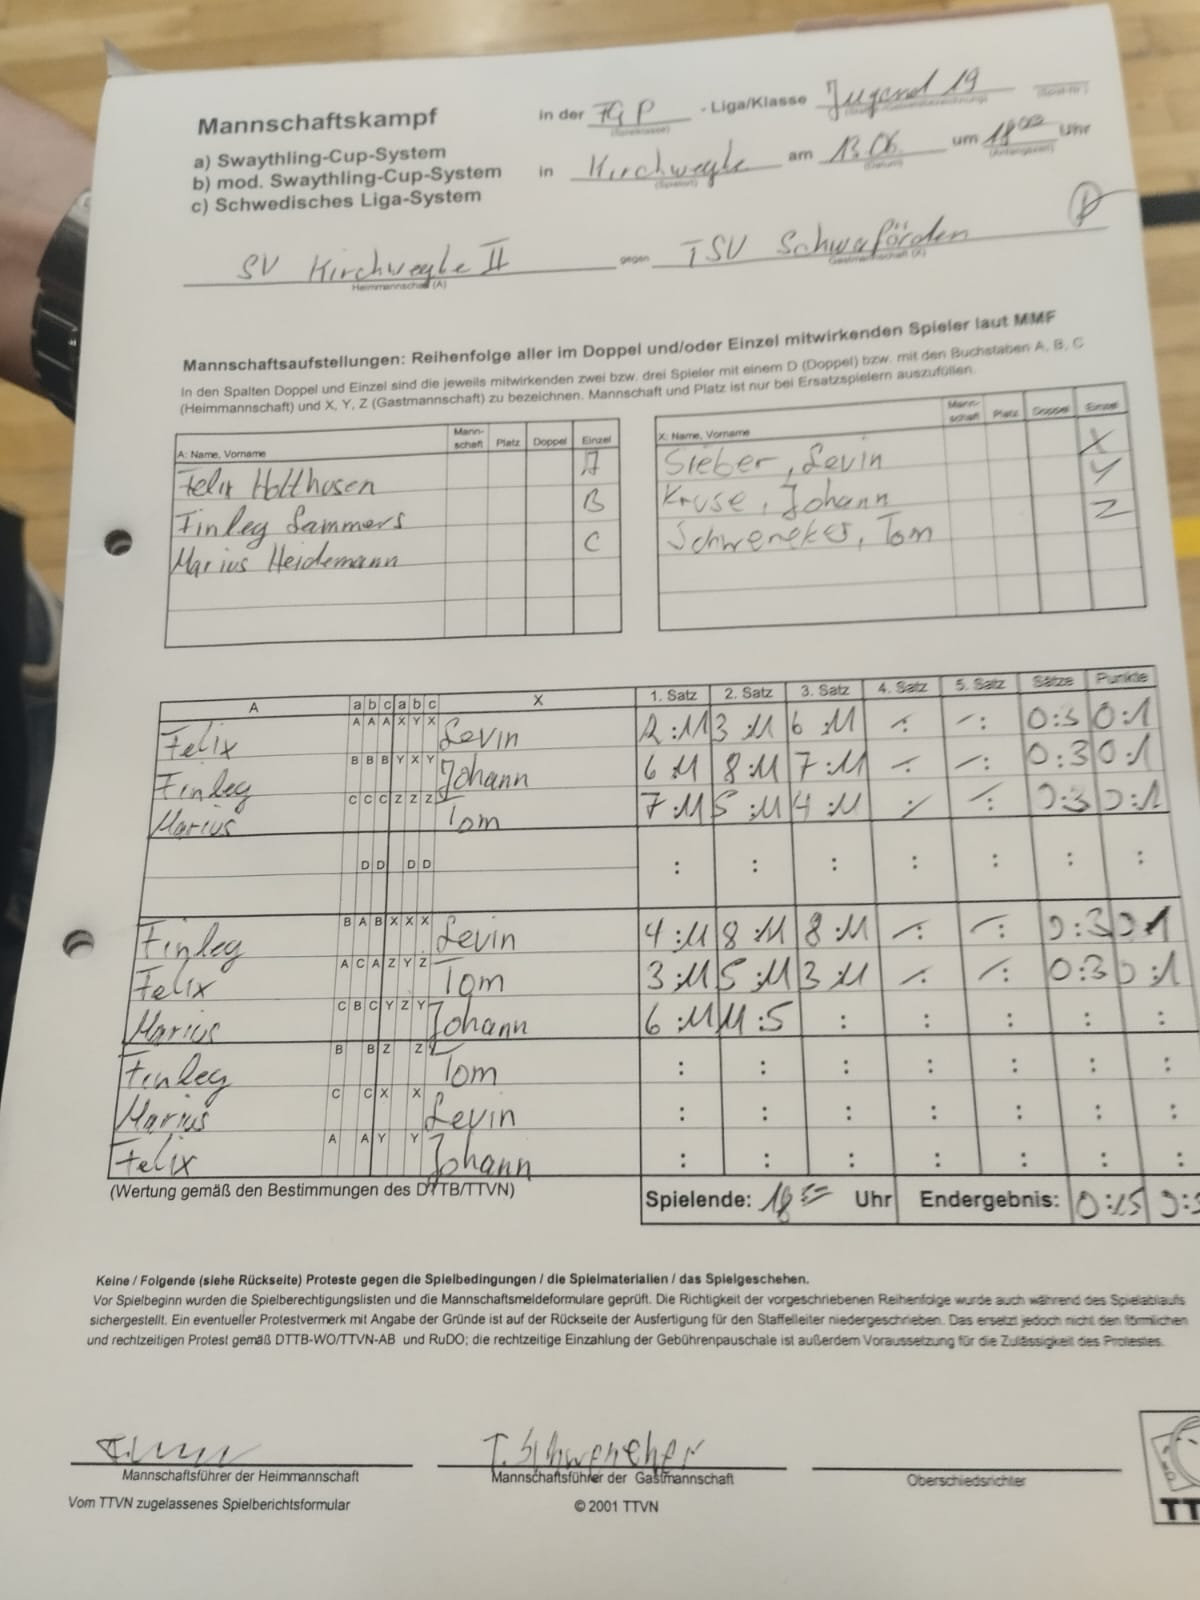 Mannschaftskampf
in der TGP - Liga/Klasse Jugend 19
(Spielklasse)
a) Swaythling-Cup-System
b) mod. Swaythling-Cup-System
c) Schwedisches Liga-System
in Kirchweyhe am 13.06. um 18 00 Uhr
(Spielort) (Datum) (Anfangszeit)
SV Kirchweyhe II gegen TSV Schwaförden
Heimmannschaft (A) Gastmannschaft (X)
Mannschaftsaufstellungen: Reihenfolge aller im Doppel und/oder Einzel mitwirkenden Spieler laut MMF
In den Spalten Doppel und Einzel sind die jeweils mitwirkenden zwei bzw. drei Spieler mit einem D (Doppel) bzw. mit den Buchstaben A, B, C
(Heimmannschaft) und X, Y, Z (Gastmannschaft) zu bezeichnen. Mannschaft und Platz ist nur bei Ersatzspielern auszufüllen.
A: Name, Vorname Mann-schaft Platz Doppel Einzel
Felix Holthusen A
Finley Sammers B
Marius Heidemann C
X: Name, Vorname Mann-schaft Platz Doppel Einzel
Sieber, Levin X
Kruse, Johann Y
Schweneker, Tom Z
A a b c a b c X 1. Satz 2. Satz 3. Satz 4. Satz 5. Satz Sätze Punkte
Felix A A A X Y X Levin 2:11 3:11 6:11 -:- -:- 0:3 0:1
Finley B B B Y X Y Johann 6:11 8:11 7:11 -:- -:- 0:3 0:1
Marius C C C Z Z Z Tom 7:11 5:11 4:11 -:- -:- 0:3 0:1
D D D D : : : : : : :
Finley B A B X X X Levin 4:11 8:11 8:11 -:- -:- 0:3 0:1
Felix A C A Z Y Z Tom 3:11 5:11 3:11 -:- -:- 0:3 0:1
Marius C B C Y Z Y Johann 6:11 11:5 : : : : :
Finley B B Z Z Tom : : : : : : :
Marius C C X X Levin : : : : : : :
Felix A A Y Y Johann : : : : : : :
(Wertung gemäß den Bestimmungen des DTTB/TTVN)
Spielende: 18 Uhr Endergebnis: 0:15 0:
Keine / Folgende (siehe Rückseite) Proteste gegen die Spielbedingungen / die Spielmaterialien / das Spielgeschehen.
Vor Spielbeginn wurden die Spielberechtigungslisten und die Mannschaftsmeldeformulare geprüft. Die Richtigkeit der vorgeschriebenen Reihenfolge wurde auch während des Spielablaufs
sichergestellt. Ein eventueller Protestvermerk mit Angabe der Gründe ist auf der Rückseite der Ausfertigung für den Staffelleiter niedergeschrieben. Das ersetzt jedoch nicht den förmlichen
und rechtzeitigen Protest gemäß DTTB-WO/TTVN-AB und RuDO; die rechtzeitige Einzahlung der Gebührenpauschale ist außerdem Voraussetzung für die Zulässigkeit des Protestes.
T. Schweneker
Mannschaftsführer der Heimmannschaft Mannschaftsführer der Gastmannschaft Oberschiedsrichter
Vom TTVN zugelassenes Spielberichtsformular © 2001 TTVN